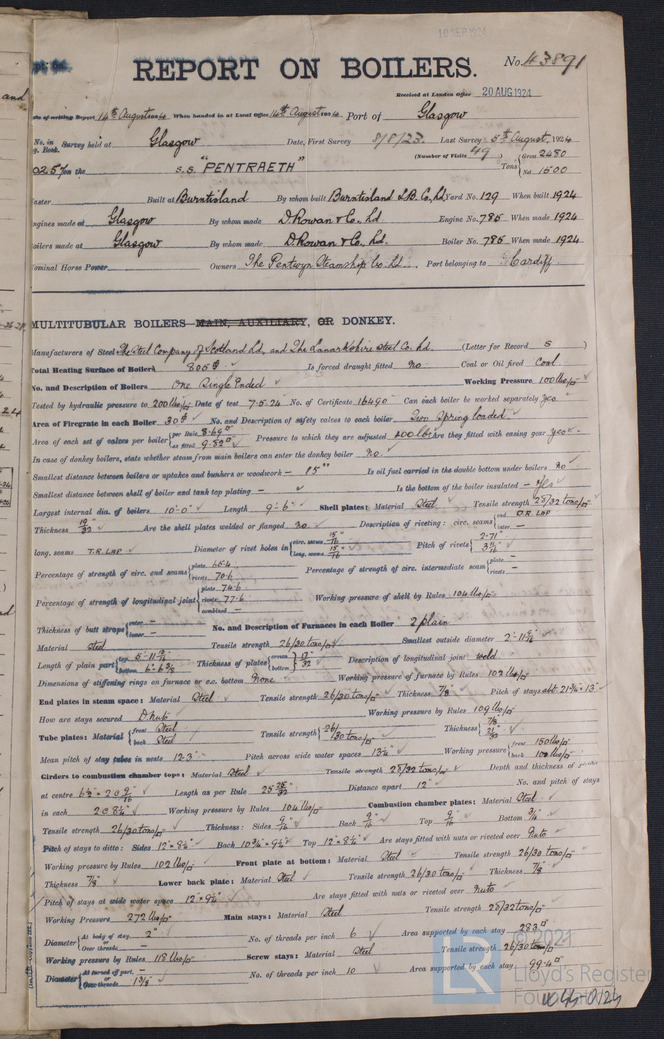 10 SEP 1924
REPORT ON BOILERS.
No. 43891
Received at London Office 20 AUG 1924
Date of writing Report 14th August 1924 When handed in at Local Office 14th August 1924 Port of Glasgow
No. in Survey held at Glasgow Date, First Survey 8/8/23. Last Survey 5th August, 1924
Reg. Book. (Number of Visits 49) Gross 2480
on the S.S. "PENTRAETH" Tons Net 1500
Master Built at Burntisland By whom built Burntisland S.B. Co., Ld Yard No. 129 When built 1924
Engines made at Glasgow By whom made D. Rowan & Co., Ld. Engine No. 785 When made 1924
Boilers made at Glasgow By whom made D. Rowan & Co., Ld. Boiler No. 785 When made 1924
Nominal Horse Power Owners The Pentwyn Steamship Co. Ld. Port belonging to Cardiff
MULTITUBULAR BOILERS MAIN, AUXILIARY, OR DONKEY.
Manufacturers of Steel The Steel Company of Scotland Ld, and The Lanarkshire Steel Co. Ld. (Letter for Record S)
Total Heating Surface of Boilers 805 Is forced draught fitted no Coal or Oil fired Coal
No. and Description of Boilers One Single Ended Working Pressure 100 lbs/□"
Tested by hydraulic pressure to 200 lbs/□" Date of test 7-5-24 No. of Certificate 16490 Can each boiler be worked separately yes
Area of Firegrate in each Boiler 30 No. and Description of safety valves to each boiler Two Spring loaded
Area of each set of valves per boiler per Rule 8.69 □" as fitted 9.82 □" Pressure to which they are adjusted 100 lbs Are they fitted with easing gear yes
In case of donkey boilers, state whether steam from main boilers can enter the donkey boiler no
Smallest distance between boilers or uptakes and bunkers or woodwork 15" Is oil fuel carried in the double bottom under boilers no
Smallest distance between shell of boiler and tank top plating – Is the bottom of the boiler insulated yes
Largest internal dia. of boilers 10'-0" Length 9'-6" Shell plates: Material Steel Tensile strength 28/32 tons/□"
Thickness Are the shell plates welded or flanged no Description of riveting: circ. seams end D.R. LAP inter. –
long. seams T.R. LAP Diameter of rivet holes in circ. seams 15/16" long. seams 15/16" Pitch of rivets 2.71"
Percentage of strength of circ. end seams plate 65.4 rivets 70.6 Percentage of strength of circ. intermediate seam plate – rivets –
Percentage of strength of longitudinal joint plate 74.6 rivets 77.6 combined – Working pressure of shell by Rules 104 lbs/□"
Thickness of butt straps outer – inner – No. and Description of Furnaces in each Boiler 2 plain
Material Steel Tensile strength 26/30 tons/□" Smallest outside diameter
Length of plain part top bottom Thickness of plates crown bottom Description of longitudinal joint weld
Dimensions of stiffening rings on furnace or c.c. bottom None Working pressure of furnace by Rules 102 lbs/□"
End plates in steam space: Material Steel Tensile strength 26/30 tons/□" Thickness 7/8" Pitch of stays
How are stays secured D. nuts Working pressure by Rules 109 lbs/□"
Tube plates: Material front Steel back Steel Tensile strength 26/30 tons/□" Thickness
Mean pitch of stay tubes in nests 12.3 Pitch across wide water spaces 13½" Working pressure front 150 lbs/□" back
Girders to combustion chamber tops: Material Steel Tensile strength 28/32 tons/□" Depth and thickness of girder
at centre Length as per Rule Distance apart 12" No. and pitch of stays
in each Working pressure by Rules 104 lbs/□" Combustion chamber plates: Material Steel
Tensile strength 26/30 tons/□" Thickness: Sides 9/16" Back 9/16" Top 9/16" Bottom 3/4"
Pitch of stays to ditto: Sides Back Top Are stays fitted with nuts or riveted over Nuts
Working pressure by Rules 102 lbs/□" Front plate at bottom: Material Steel Tensile strength 26/30 tons/□"
Thickness 7/8" Lower back plate: Material Steel Tensile strength 26/30 tons/□" Thickness 7/8"
Pitch of stays at wide water space Are stays fitted with nuts or riveted over nuts
Working Pressure 272 lbs/□" Main stays: Material Steel Tensile strength 28/32 tons/□"
Diameter At body of stay, 2" or Over threads – No. of threads per inch 6 Area supported by each stay 283 □"
Working pressure by Rules 118 lbs/□" Screw stays: Material Steel Tensile strength 26/30 tons/□"
Diameter At turned off part, – or Over threads No. of threads per inch 10 Area supported by each stay 99.4 □"
© 2021
Lloyd's Register
Foundation